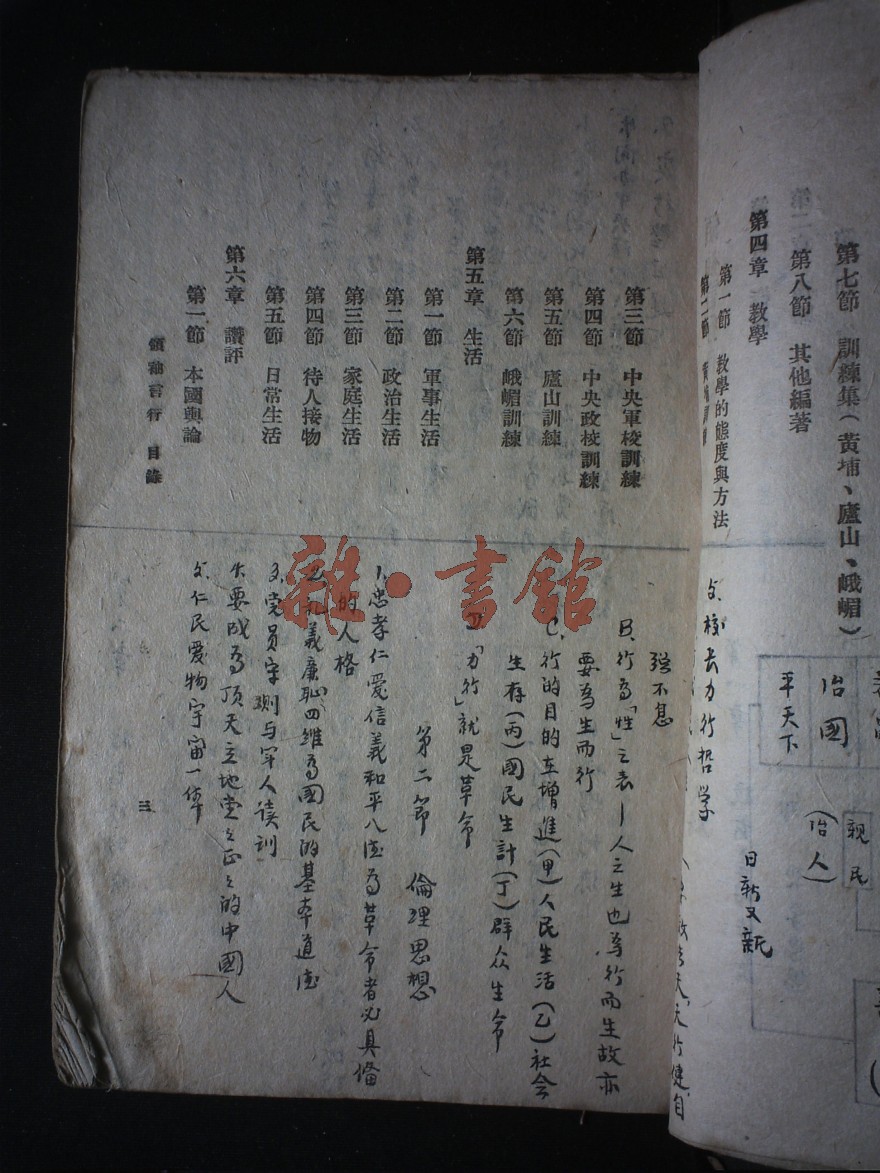 第七節 訓練集(黃埔、廬山、峨嵋)
第八節 其他編著
第四章 教學
第一節 教學的態度與方法
第三節 中央軍校訓練
第四節 中央政校訓練
第五節 廬山訓練
第六節 峨嵋訓練
第五章 生活
第一節 軍事生活
第二節 政治生活
第三節 家庭生活
第四節 待人接物
第五節 日常生活
第六章 讚評
第一節 本國輿論
領袖言行 目錄
三
治國
平天下
親民
(治人)
日新又新
5.校长力行哲学
天行健自
强不息
B.行为「性」之表—人之生也為行而生故亦
要為生而行
C.行的目的在增進(甲)人民生活(乙)社会
生存(丙)國民生計(丁)群众生命
D「力行」就是革命
第二節 倫理思想
1.忠孝仁愛信義和平八德為革命者必具备
的人格
2.礼義廉恥四维為國民的基本道德
3.党员守则与军人读训
4.要成為顶天立地堂々正々的中國人
5.仁民爱物宇宙一体
雜·書館